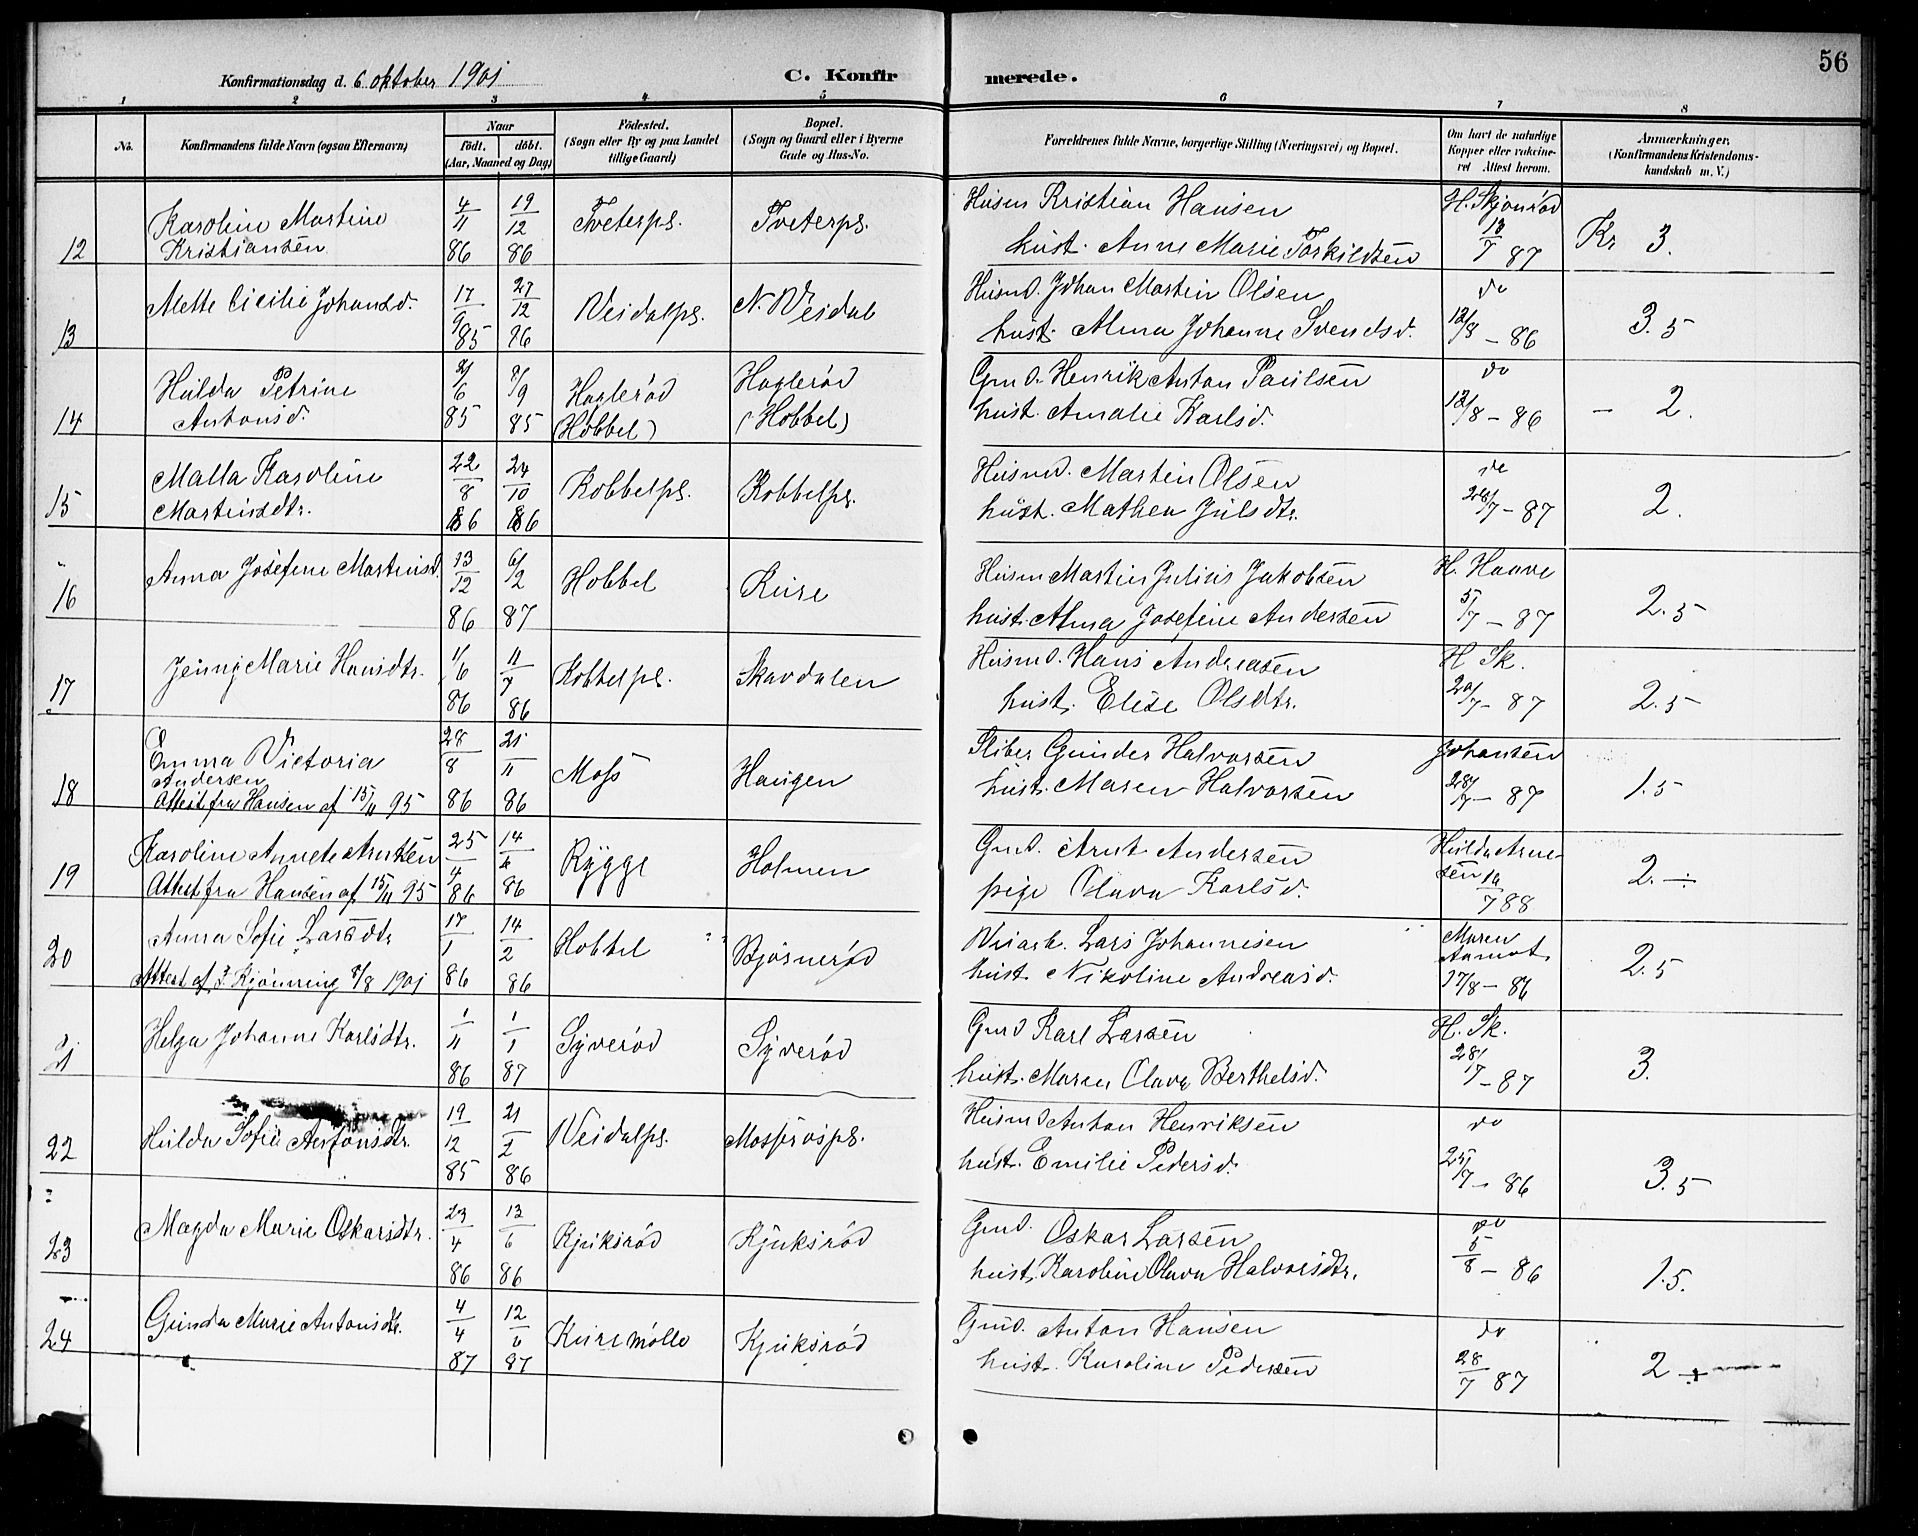 56
Konfirmationsdag d. 6 oktober 1901
C. Konfirmerede.
1 2 3 4 5 6 7 8
No.
Konfirmandens fulde Navn (ogsaa Efternavn)
Naar
födt. döbt.
(Aar, Maaned og Dag)
Födested.
(Sogn eller By og paa Landet
tillige Gaard)
Bopæl.
(Sogn og Gaard eller i Byerne
Gade og Hus-No.
Forældrenes fulde Navne, borgerlige Stilling (Næringsvei) og Bopæl.
Om havt de naturlige
Kopper eller vakcine-
ret Attest herom.
Anmærkninger.
(Konfirmandens Kristendoms-
kundskab m. V.)
12 Karoline Martine
Kristiansen
4/11 86 19/12 86
Tveterpl. Tveterpl.
Husm Kristian Hansen
hust. Anne Marie Torkildsen
H. Skjønrød
13/7 87
Kr 3.
13 Mette Cicilie Johansd.
17/9 85 27/12 86
Veidalpl. N. Veidal
Husmd. Johan Martin Olsen
hust. Alma Johanne Svendsd.
do
12/8 - 86
3.5
14 Hulda Petrine
Antonsd.
8/6 85 9/9 85
Haglerød
(Hobbel)
Haglerød
(Hobbel)
Gmd. Henrik Anton Paulsen
hust. Amalie Karlsd.
do
12/8 - 86
- 2.
15 Malla Karoline
Martinsdtr.
22/8 86 24/10 86
Kobbelpl. Kobbelpl.
Husmd. Martin Olsen
hust. Mathea Julsdtr.
do
28/7 - 87
2.
16 Anna Josefine Martinsd.
13/12 86 6/2 87
Hobbel Kure
Husm Martin Julius Jakobsen
hust. Alma Josefine Andersen
H. Haave
5/7 - 87
2.5
17 Jenny Marie Hansdtr.
1/6 86 11/7 86
Kobbelpl. Skavdalen
Husmd. Hans Andreasen
hust. Elise Olsdtr.
H Sk.
20/7 - 87
2.5
18 Emma Victoria
Andersen
Attest fra Hansen af 15/11 95
28/8 86 21/11 86
Moss Haugen
Sliber Gunder Halvorsen
hust. Maren Halvorsen
Johansen
28/7 - 87
1.5
19 Karoline Annete Arntsen
Attest fra Hansen af 15/11 95
25/4 86 14/6 86
Rygge Holmen
Gmd. Arnt Andersen
pige Olava Karlsd.
Hulda Arne-
sen 16/7 88
2. ÷
20 Anna Sofie Larsdtr
Attest af J. Kjønning 8/8 1901
17/1 86 14/2 86
Hobbel Bjørnerød
Lars Johannesen
hust. Nikoline Andreasd.
Maren
Aamot
17/8 - 86
2.5
21 Helga Johanne Karlsdtr.
1/11 86 1/1 87
Syverød Syverød
Gmd Karl Larsen
hust. Maren Olava Berthelsd.
H. Sk.
28/7 - 87
3.
22 Hulda Sofie Antonsdtr.
19/12 85 21/2 86
Veidalpl. Mosserospl.
Husmd Anton Henriksen
hust. Emilie Pedersd.
do
25/7 - 86
3.5
23 Magda Marie Oskarsdtr.
23/4 86 13/6 86
Kjuksrød Kjuksrød
Gmd. Oskar Larsen
hust. Karoline Olava Halvorsdtr.
do
5/8 - 86
1.5.
24 Gunda Marie Antonsdtr.
4/4 87 12/6 87
Kuremølle Kjuksrød
Gmd. Anton Hansen
hust. Karoline Pedersen
do
28/7 87
2 ÷